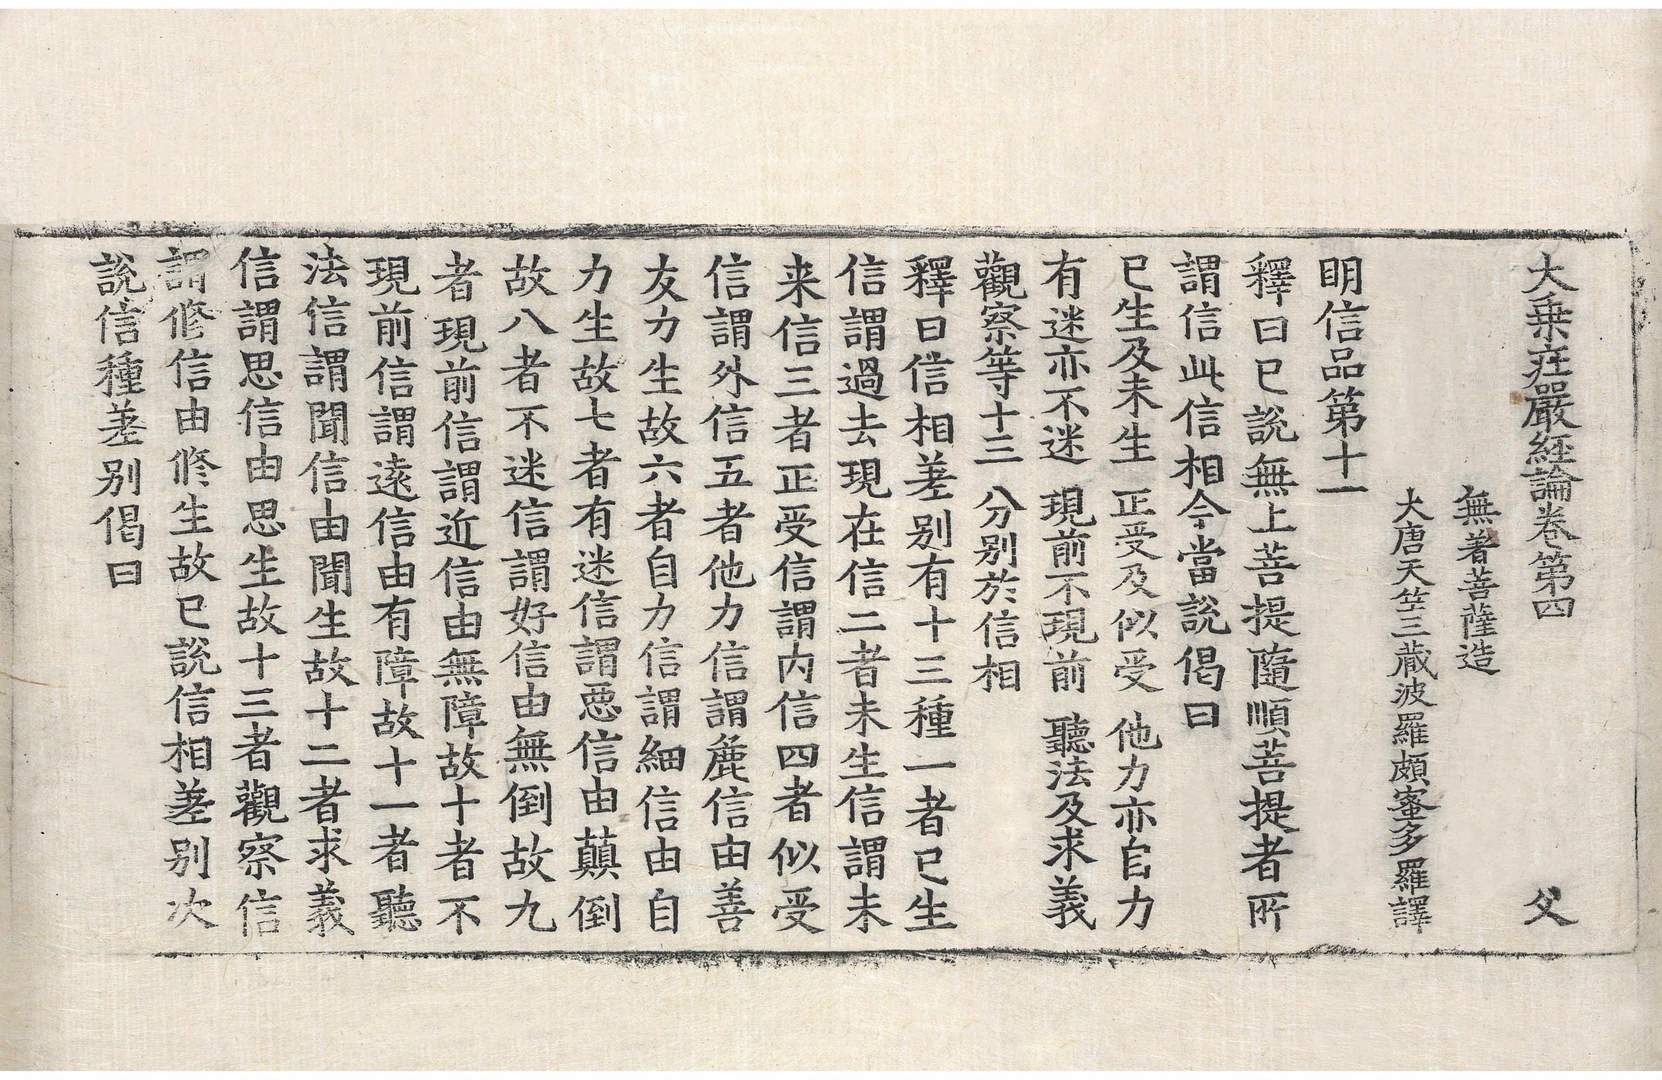 大乗疰嚴經論卷第四　父
無著菩薩造
大唐天竺三藏波羅頗蜜多羅譯
明信品第十一
釋曰已說無上菩提隨順菩提者所
謂信此信相今當說偈曰
已生及未生　正受及似受　他力亦自力
有迷亦不迷　現前不現前　聽法及求義
觀察等十三　分別於信相
釋曰信相差別有十三種一者已生
信謂過去現在信二者未生信謂未
来信三者正受信謂內信四者似受
信謂外信五者他力信謂麁信由善
友力生故六者自力信謂細信由自
力生故七者有迷信謂惡信由顛倒
故八者不迷信謂好信由無倒故九
者現前信謂近信由無障故十者不
現前信謂遠信由有障故十一者聽
法信謂聞信由聞生故十二者求義
信謂思信由思生故十三者觀察信
謂修信由修生故已說信相差別次
說信種差別偈曰